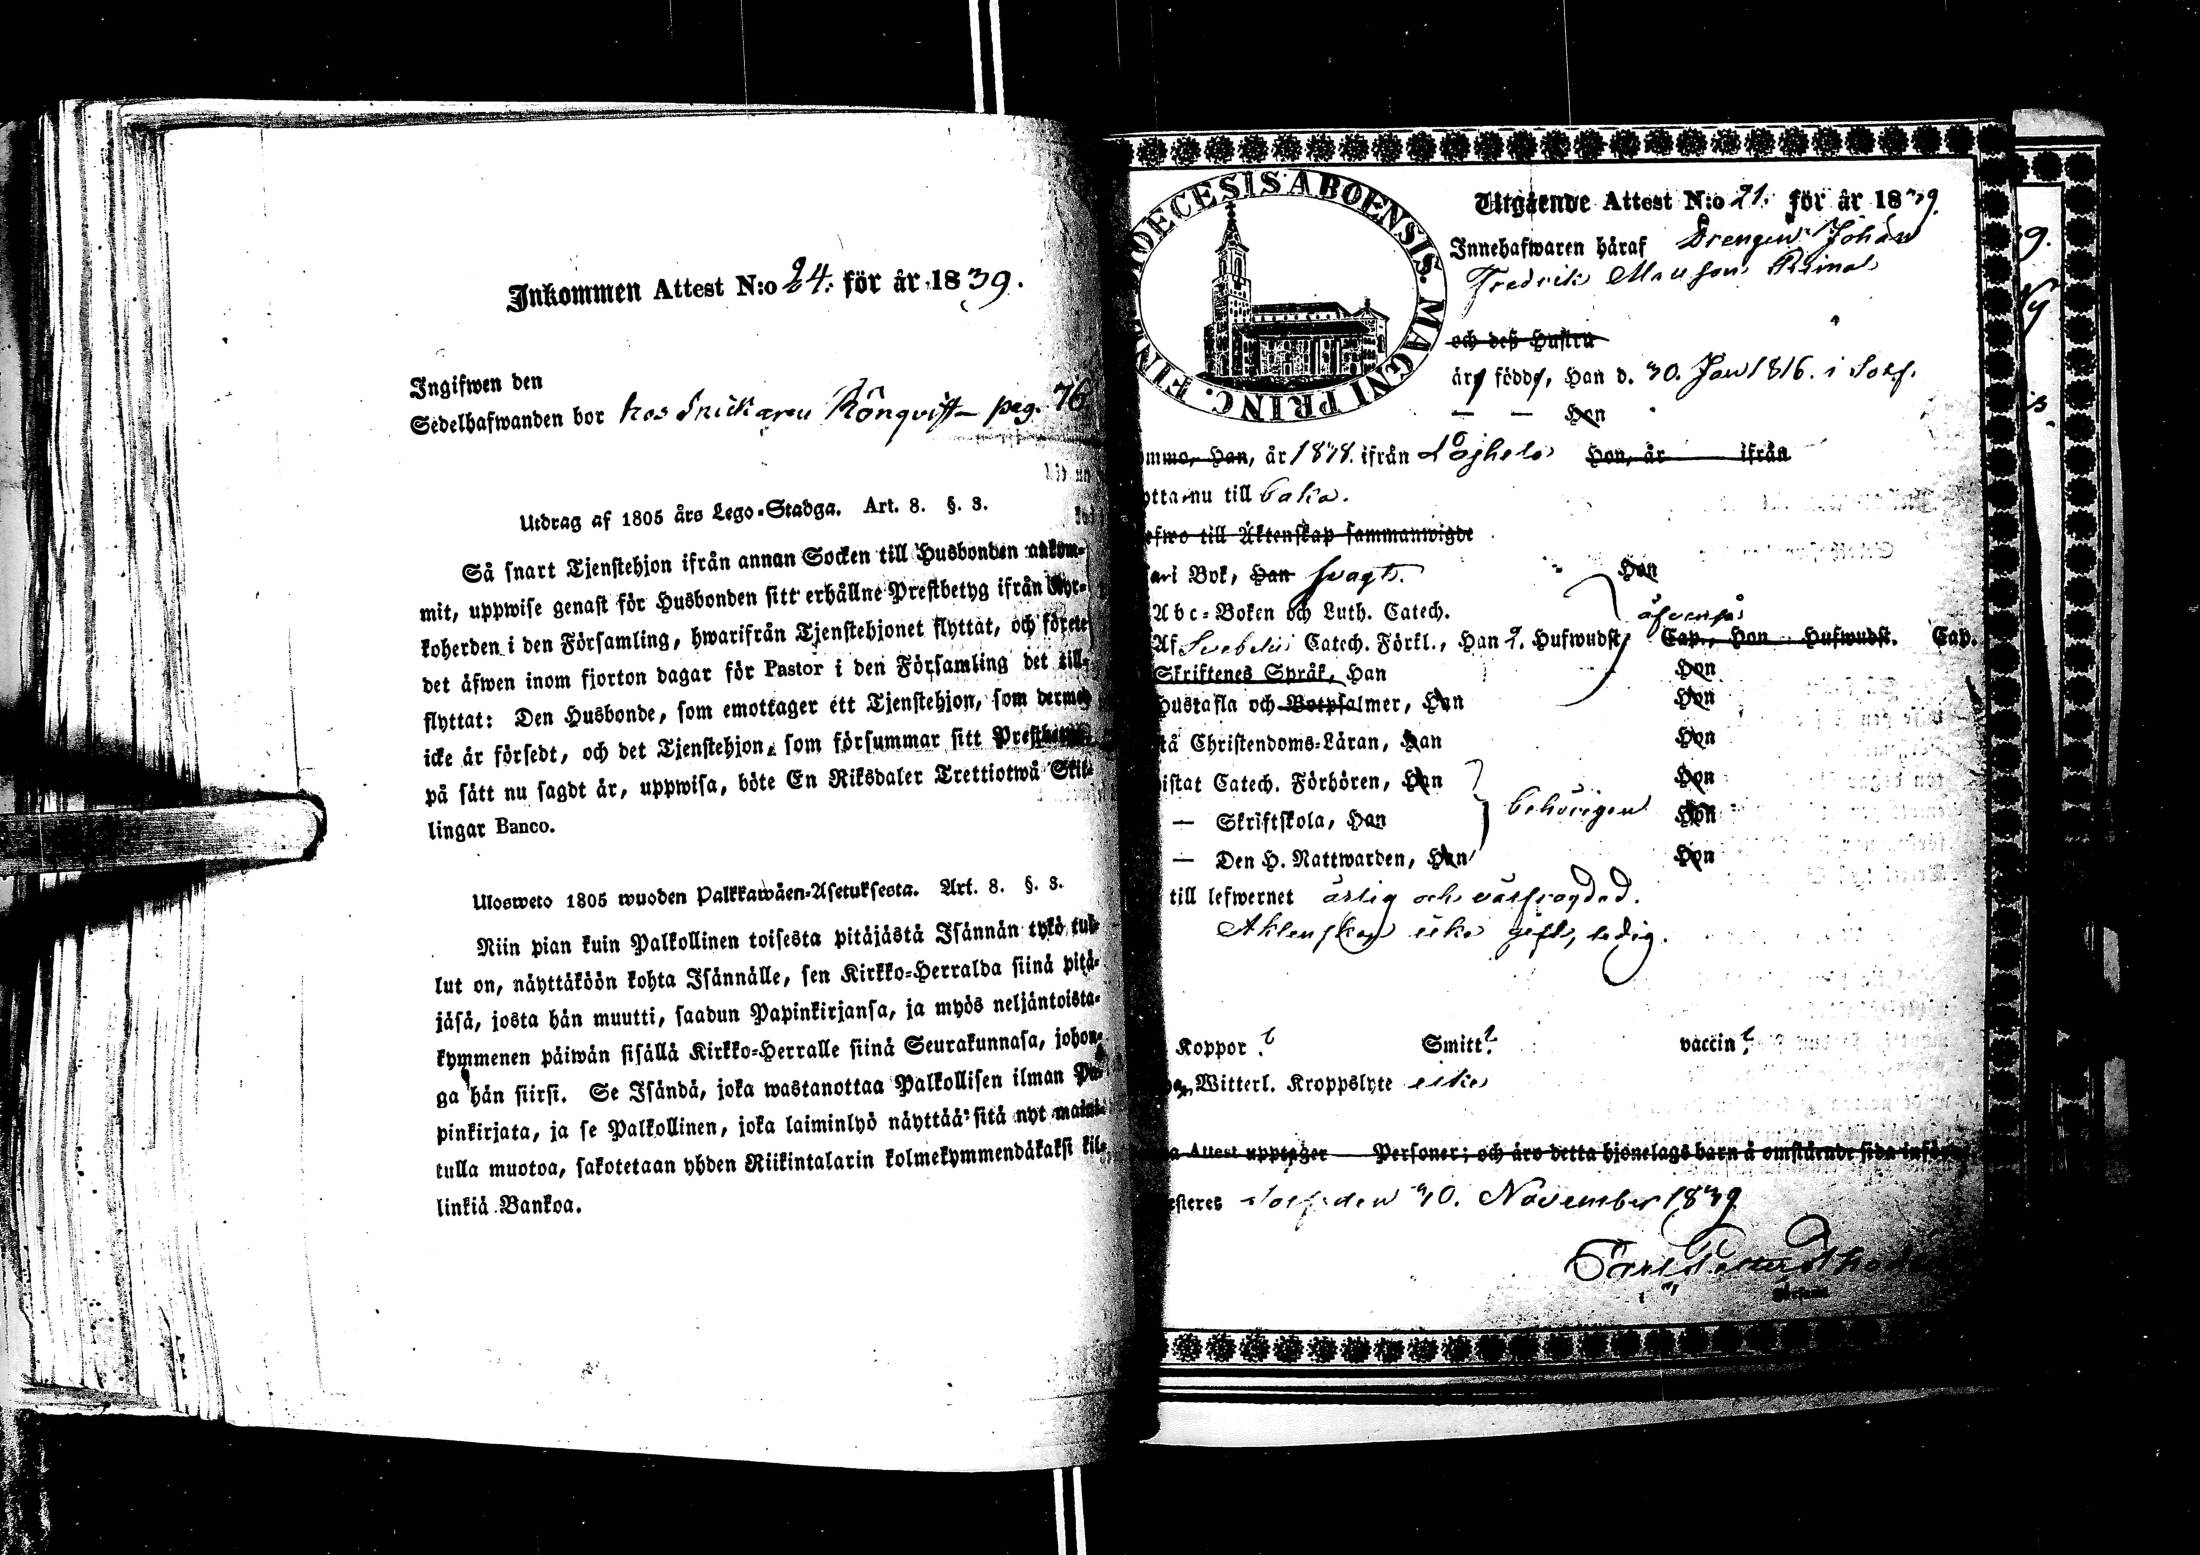 Inkommen Attest N:o 24. för år 1839.
Ingifwen den
Sedelhafwanden bor hos Snickaren Rönqvist pag. 76.
Utdrag af 1805 års Lego-Stadga. Art. 8. §. 3.
Så snart Tjenstehjon ifrån annan Socken till Husbonden ankom-
mit, uppwise genast för Husbonden sitt erhållne Prestbetyg ifrån Kyr-
koherden i den Församling, hwarifrån Tjenstehjonet flyttat, och förete
det äfwen inom fjorton dagar för Pastor i den Församling det till-
flyttat: Den Husbonde, som emottager ett Tjenstehjon, som dermed
icke är försedt, och det Tjenstehjon, som försummar sitt
på sätt nu sagdt är, uppwisa, böte En Riksdaler Trettiotwå Skil-
lingar Banco.
Ulosweto 1805 wuoden Palkkawäen-Asetuksesta. Art. 8. §. 3.
Niin pian kuin Palkollinen toisesta pitäjästä Isännän tykö tul-
lut on, näyttäköön kohta Isännälle, sen Kirkko-Herralda siinä pitä-
jäsä, josta hän muutti, saadun Papinkirjansa, ja myös neljäntoista-
kymmenen päiwän sisällä Kirkko-Herralle siinä Seurakunnasa, johon-
ga hän siirsi. Se Isändä, joka wastanottaa Palkollisen ilman Pa-
pinkirjata, ja se Palkollinen, joka laiminlyö näyttää sitä nyt maini-
tulla muotoa, sakotetaan yhden Riikintalarin kolmekymmendäkaksi kil-
linkiä Bankoa.
DIOECESIS ABOENSIS. MAGNI PRINC. FINL.
Utgående Attest N:o 21. för år 1839.
Innehafwaren häraf Drengen Johan
Fredrik
och deß Hustru
äro födde, Han d. 30. Jan 1816. i
Hon
Han, år 1838. ifrån Hon, år ifrån
nu till baka.
till Äktenskap sammanwigde
Bok, Han svagt. Hon
Abc-Boken och Luth. Catech.
Af Svebelii Catech. Förkl., Han 2. Hufwudst. Cap., Hon Hufwudst. Cap.
Skriftenes Språk, Han Hon
Hustafla och Botpsalmer, Han Hon
Christendoms-Läran, Han Hon
Catech. Förhören, Han Hon
— Skriftskola, Han behörigen Hon
— Den H. Nattwarden, Han Hon
till lefwernet ärlig och välfrägdad.
Äktenskap icke gift, ledig.
Koppor ? Smitt? vaccin ?
Witterl. Kroppslyte icke
Attest upptager Personer; och äro detta hjonelags barn å omstående sida
den 30. November 1839